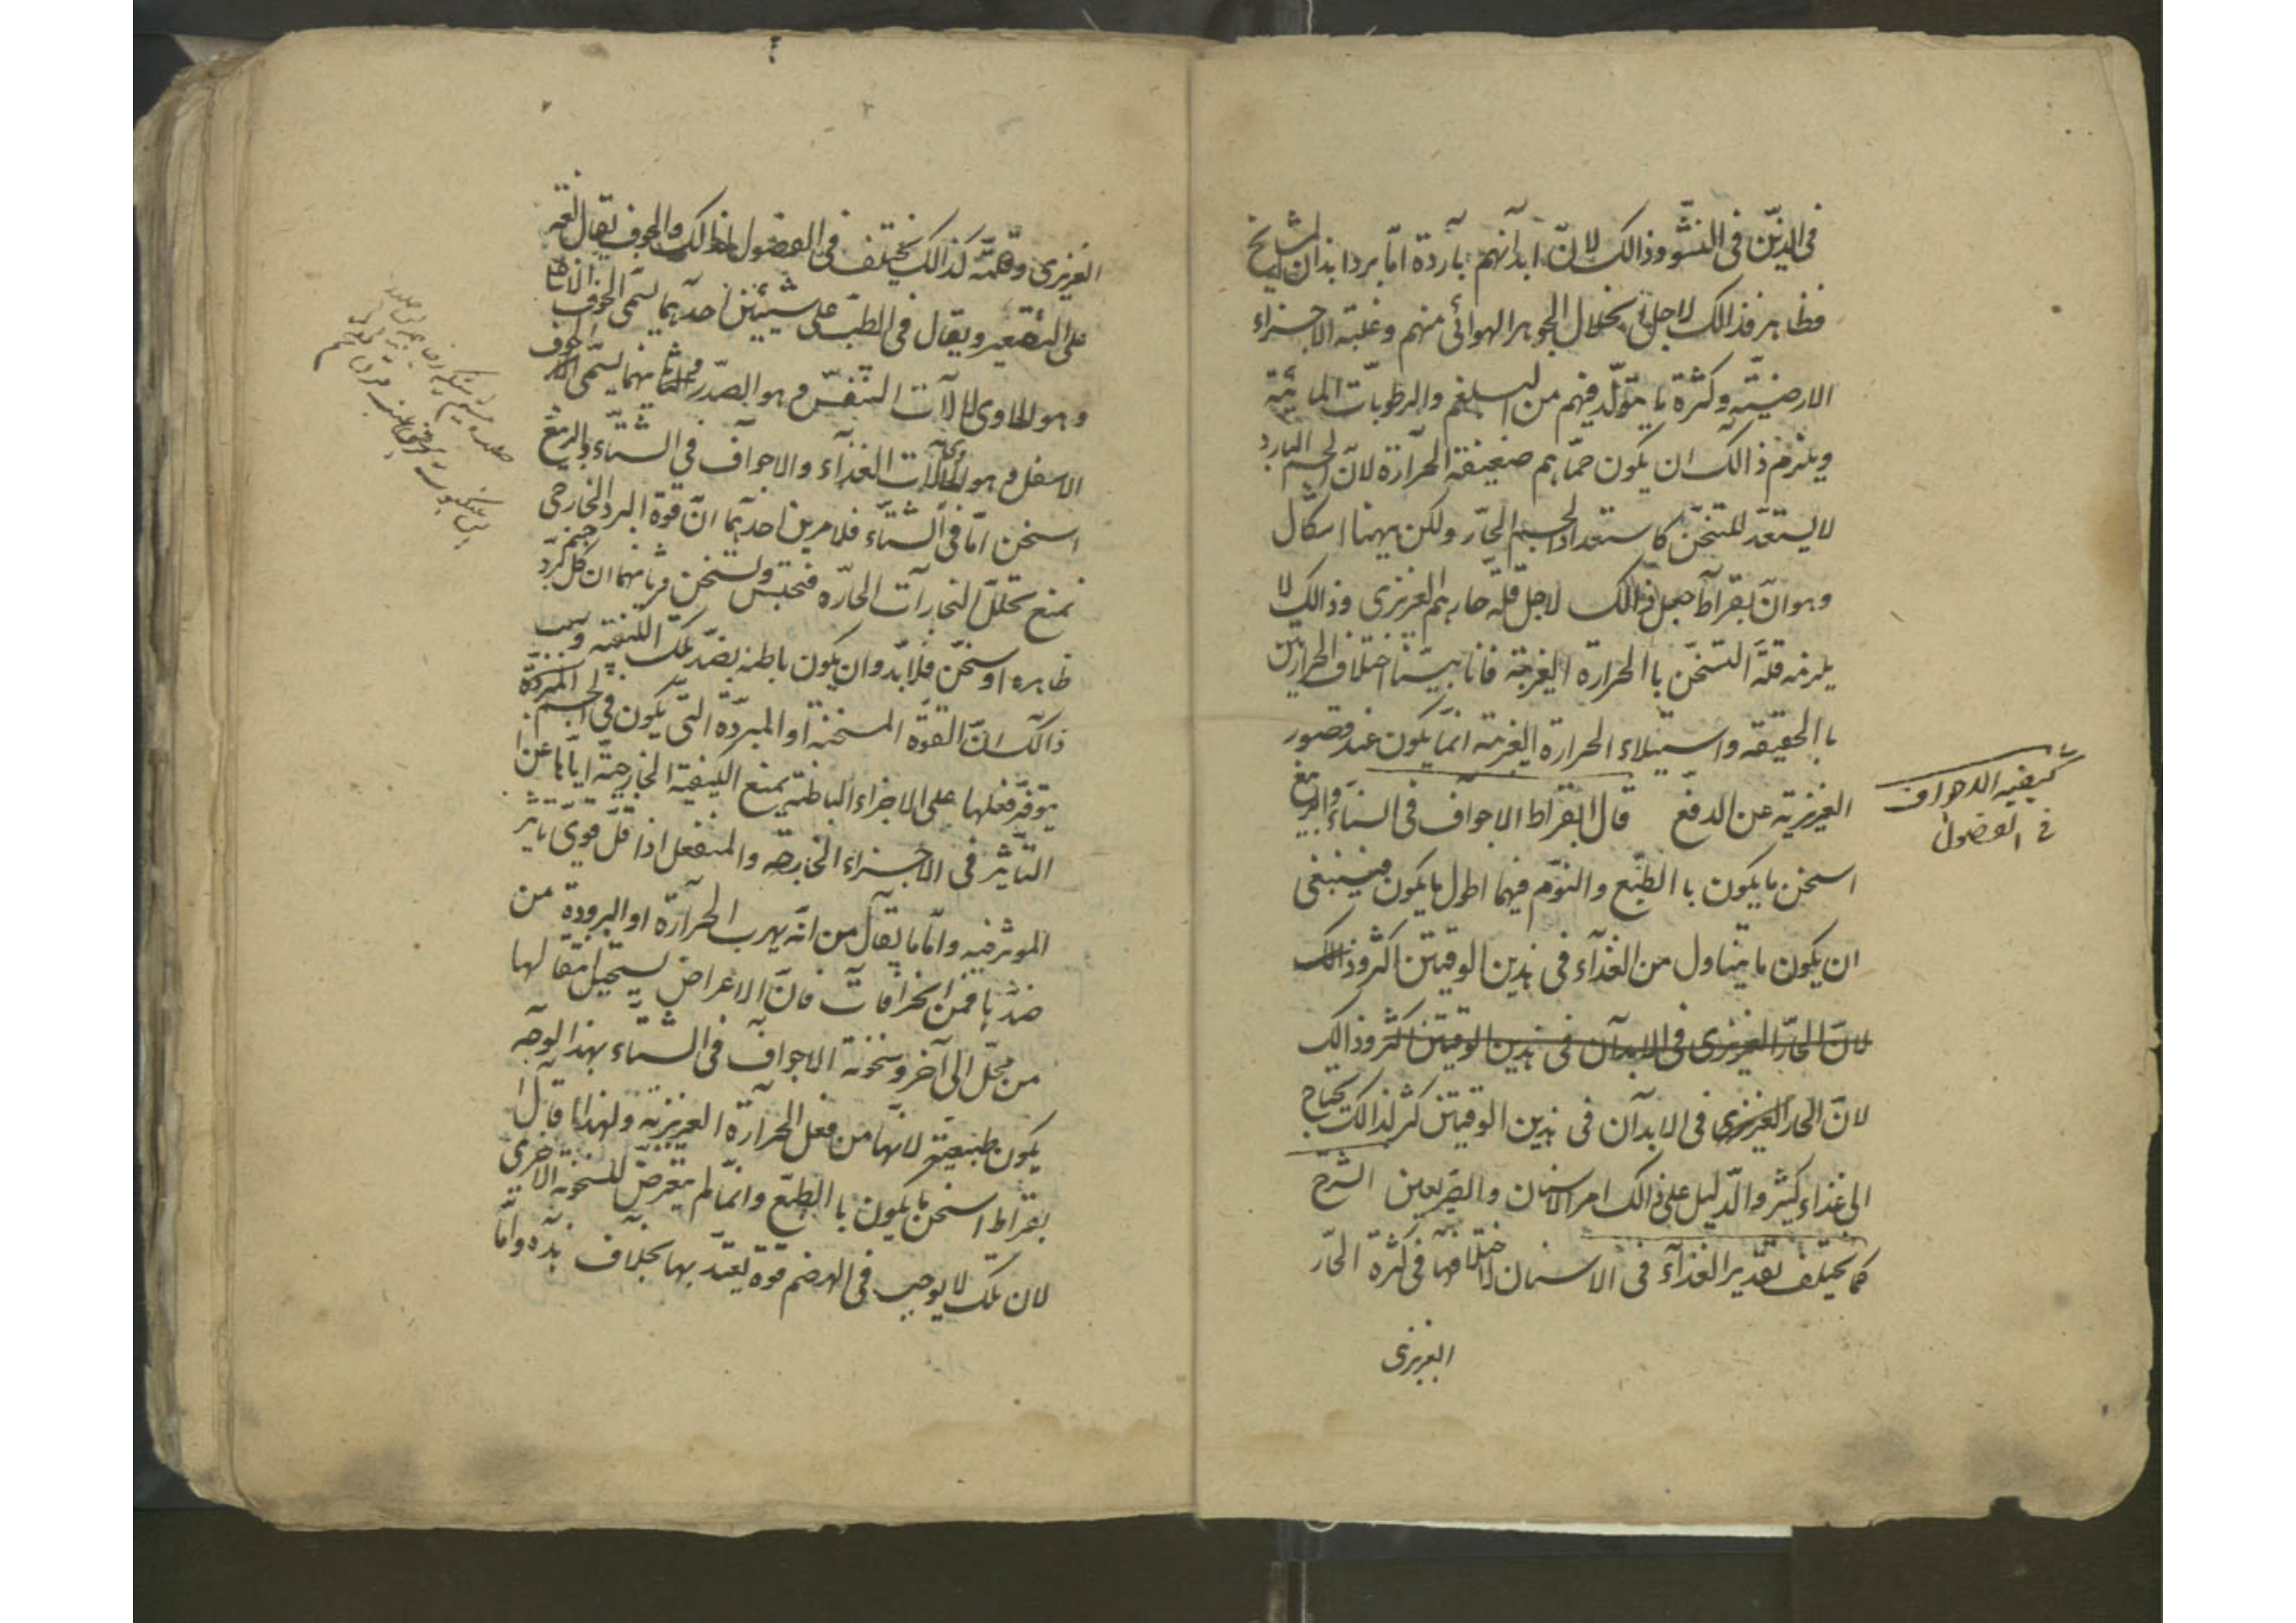 فى الذين فى النشو وذالك لانّ ابدانهم باردة امّا برد ابدان المشايخ
فظاهر فذالك لاجل تحلال الجوهر الهوائى منهم وغلبة الاجزاء
الارضيّة وكثرة ما يتولّد فيهم من البلغم والرطوبات المائية
ويلزم ذالك ان يكون حمّاهم ضعيفة الحرارة لانّ الجسم البارد
لا يستعدّ للتسخّن كاستعداد الجسم الحارّ ولكن ههنا اشكال
وهو انّ بقراط جعل ذالك لاجل قلّة حارهم الغريزى وذالك لا
يلزمه قلّة التسخّن باالحرارة الغريبة فانا بيّنا اختلاف الحرارتين
باالحقيقه واستيلاء الحرارة الغريبة انّما يكون عند قصور
الغريزيه عن الدفع قال البقراط الاجواف فى الشتاء والربيع
اسخن ما يكون باالطبع والنوم فيهما اطول ما يكون فينبغى
ان يكون ما يتناول من الغذآء فى هذين الوقتين اكثر وذالك
لانّ الحارّ الغريزى فى الابدآن فى هذين الوقتين اكثر وذالك
لانّ الحار الغريزى فى الابدآن فى هذين الوقتين كثر لذالك يحتاج
الى غذاء كثير والدّليل على ذالك امر الاسنان والصّريعين الشرح
كما يختلف تقدير الغذآء فى الاسنان لاختلافها فى كثرة الحارّ
الغريزى
كيفيه الاجواف
فى الفضول
الغريزى وقلّته كذالك يختلف فى الفصول لذالك والجوف يقال لغه
على التقعير ويقال فى الطبّ على شيئين احدهما يسمّى الجوف الاعلى
وهو الحاوى لالآت التنفّس وهو الصّدر وثانيهما يسمّى الجوف
الاسفل وهو الحاوى لآلات الغذآء والاجوآف فى الشتّاء والربيع
اسخن امّا فى الشتّاء فلامرين احدهما انّ قوة البرد الخارجى
تمنع تحلّل البخارآت الحارّه فتحبس وتسخن وثانيهما ان كل جسم برّد
ظاهره او سخّن فلا بدّ وان يكون باطنه بضدّ تلك الكيفيّة وسبب
ذالك انّ القوّة المسخنة او المبرّدة الّتى يكون فى الجسم المبردة
يتوفّر فعلها على الاجزاء الباطنة بمنع الكيفيّة الخارجيّة ايّاها عن
التّاثير فى الاجزاء الخارجه والمنفعل اذا قلّ قوى تاثير
الموثر فيه وامّا ما يقال من انّه يهرب الحرآرة او البرودة من
ضدّها فمن الخرافات فانّ الاعراض يستحيل انتقالها
من محلّ الى آخر وسخونة الاجوآف فى الشتّاء بهذا الوجه
يكون طبيعيّة لانّها من فعل الحرآرة الغريزيّة ولهذا قال
بقراط اسخن ما يكون باالطبع وانّما لم يتعرّض للسخونة الاخرى
لان تلك لا يوجب فى الهضم قوة يعتدّ بها بخلاف هذه وامّا